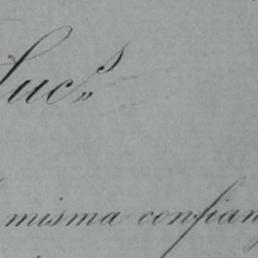 Suc.s
misma confian